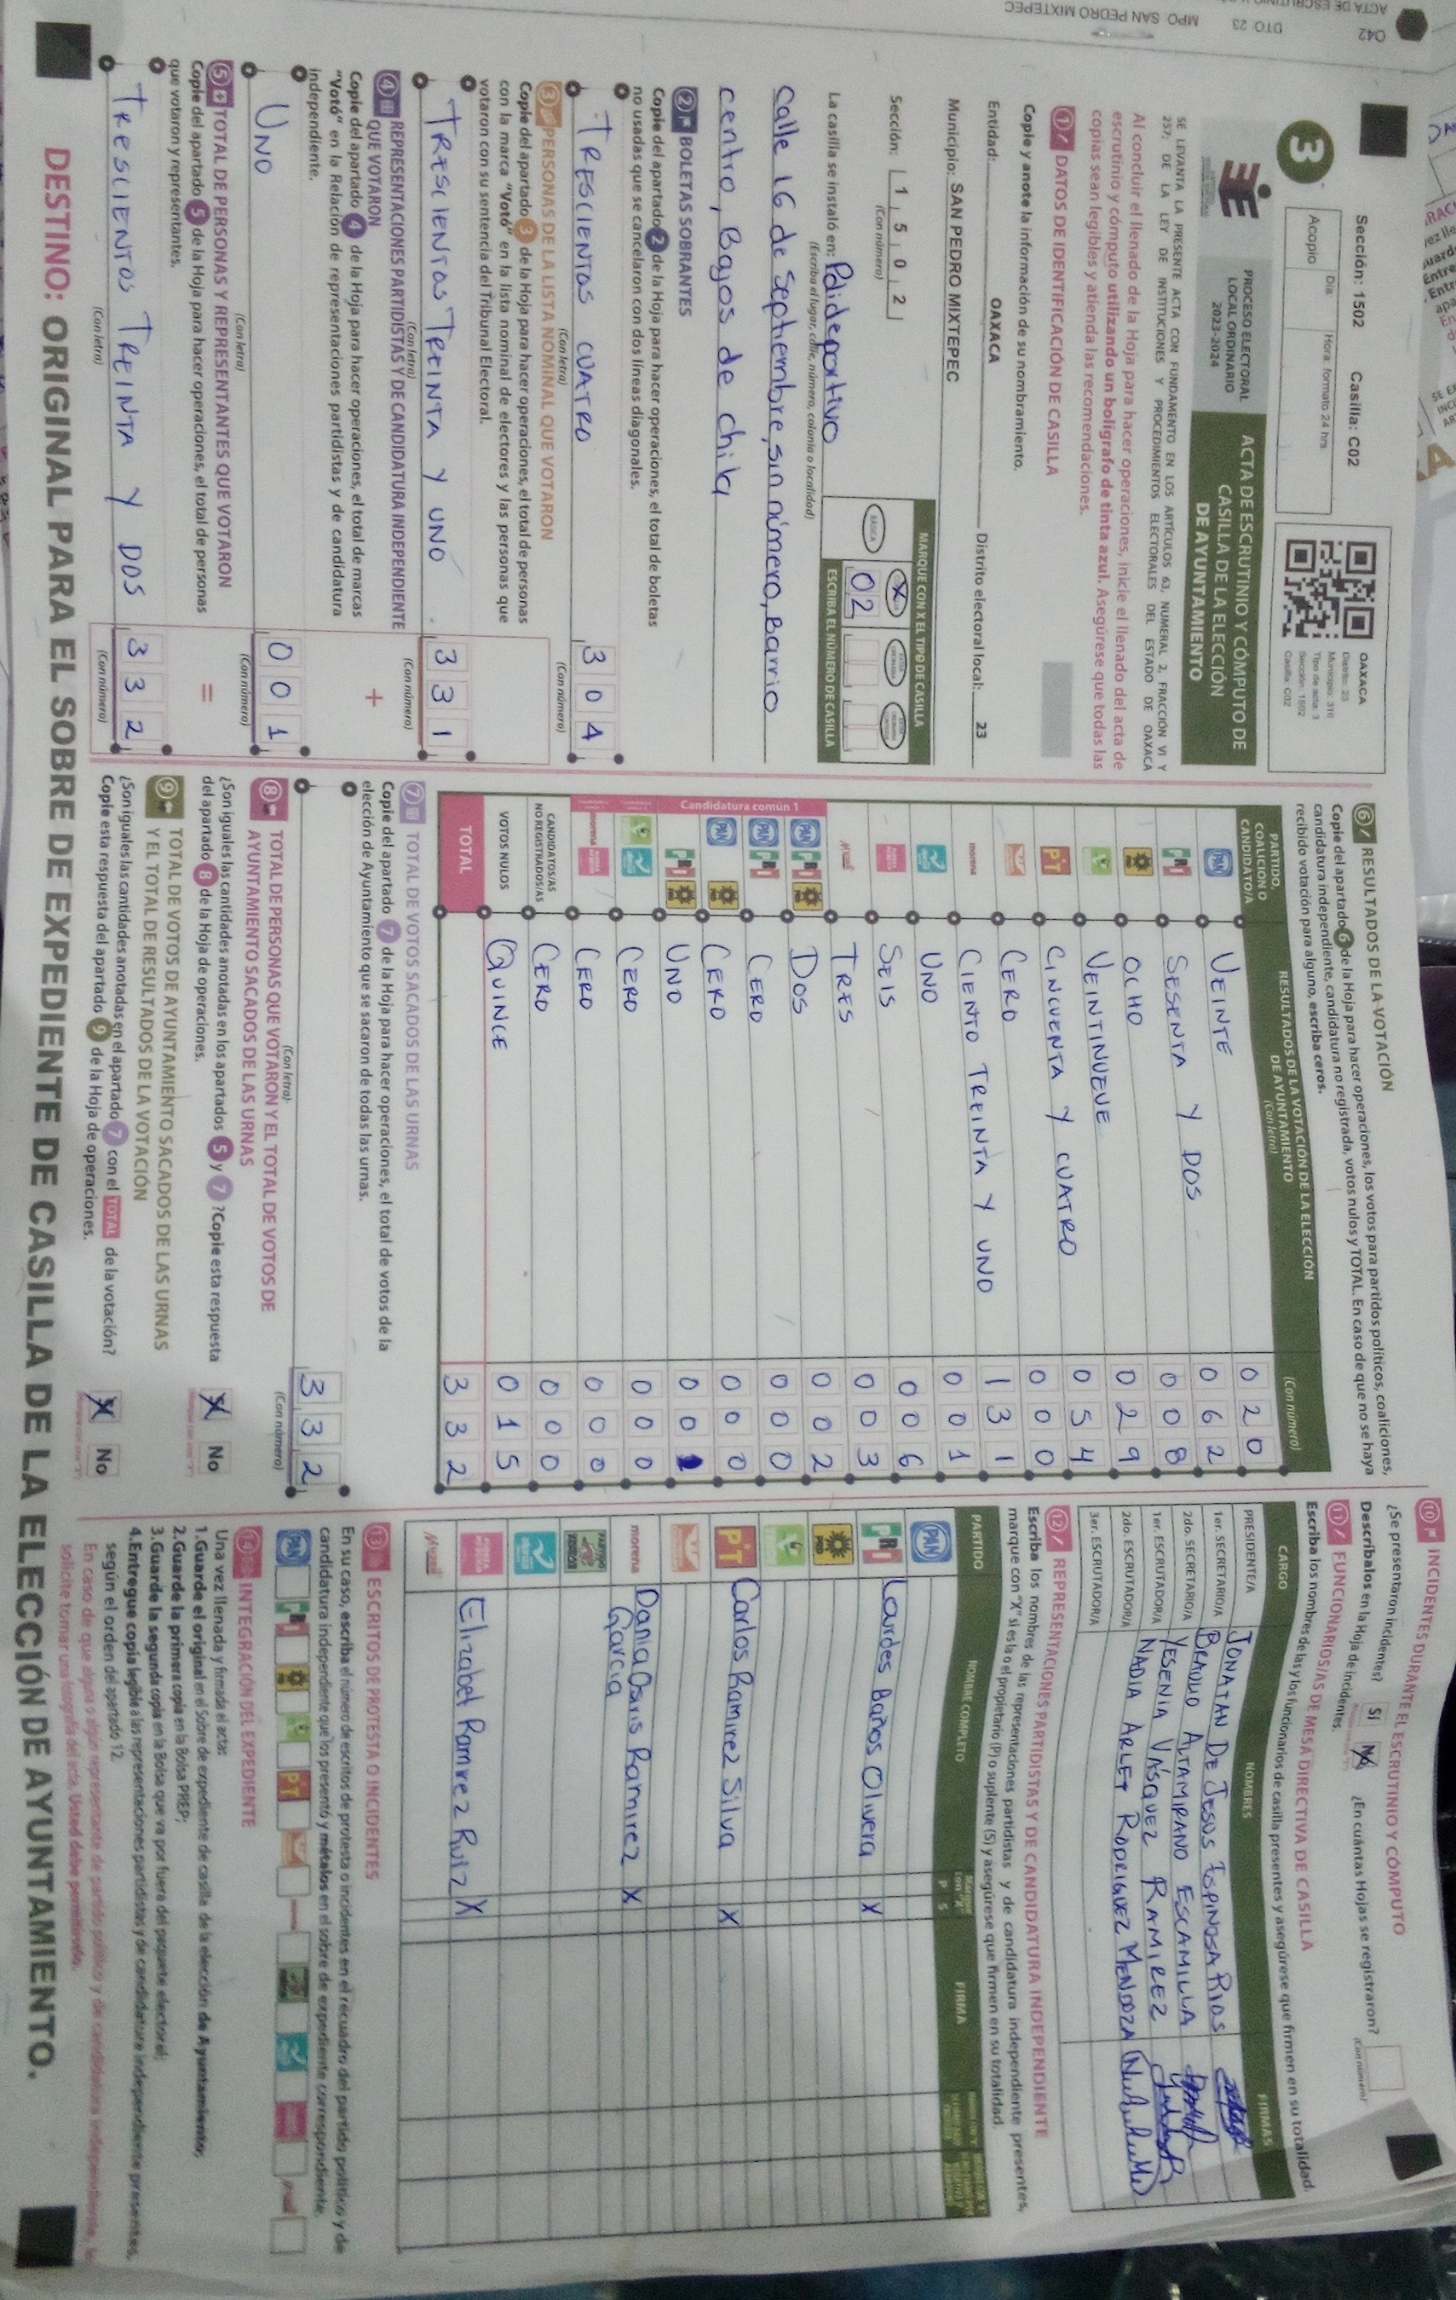 Sección: 1502 Casilla: C02
3
Acopio
Día
Hora: formato 24 hrs
OAXACA
Distrito: 23
Municipio: 318
Tipo de acta: 3
Sección: 1502
Casilla: C02
PROCESO ELECTORAL
LOCAL ORDINARIO
2023-2024
ACTA DE ESCRUTINIO Y CÓMPUTO DE
CASILLA DE LA ELECCIÓN
DE AYUNTAMIENTO
SE LEVANTA LA PRESENTE ACTA CON FUNDAMENTO EN LOS ARTÍCULOS 63, NUMERAL 2, FRACCIÓN VI Y
237; DE LA LEY DE INSTITUCIONES Y PROCEDIMIENTOS ELECTORALES DEL ESTADO DE OAXACA
Al concluir el llenado de la Hoja para hacer operaciones, inicie el llenado del acta de
escrutinio y cómputo utilizando un bolígrafo de tinta azul. Asegúrese que todas las
copias sean legibles y atienda las recomendaciones.
1 DATOS DE IDENTIFICACIÓN DE CASILLA
Copie y anote la información de su nombramiento.
Entidad: OAXACA Distrito electoral local: 23
Municipio: SAN PEDRO MIXTEPEC
Sección: 1 5 0 2
(Con número)
MARQUE CON X EL TIPO DE CASILLA
BÁSICA X
02
ESCRIBA EL NÚMERO DE CASILLA
La casilla se instaló en: Polideportivo
(Escriba el lugar, calle, número, colonia o localidad)
calle 16 de Septiembre, sin número, Barrio
centro, Bajos de chila
2 BOLETAS SOBRANTES
Copie del apartado 2 de la Hoja para hacer operaciones, el total de boletas
no usadas que se cancelaron con dos líneas diagonales.
TRESCIENTOS CUATRO 3 0 4
(Con letra) (Con número)
3 PERSONAS DE LA LISTA NOMINAL QUE VOTARON
Copie del apartado 3 de la Hoja para hacer operaciones, el total de personas
con la marca "Votó" en la lista nominal de electores y las personas que
votaron con su sentencia del Tribunal Electoral.
TRESCIENTOS TREINTA Y UNO 3 3 1
(Con letra) (Con número)
4 REPRESENTACIONES PARTIDISTAS Y DE CANDIDATURA INDEPENDIENTE
QUE VOTARON +
Copie del apartado 4 de la Hoja para hacer operaciones, el total de marcas
"Votó" en la Relación de representaciones partidistas y de candidatura
independiente.
UNO 0 0 1
(Con letra) (Con número)
5 TOTAL DE PERSONAS Y REPRESENTANTES QUE VOTARON =
Copie del apartado 5 de la Hoja para hacer operaciones, el total de personas
que votaron y representantes.
TRESCIENTOS TREINTA Y DOS 3 3 2
(Con letra) (Con número)
6 RESULTADOS DE LA VOTACIÓN
Copie del apartado 6 de la Hoja para hacer operaciones, los votos para partidos políticos, coaliciones,
candidatura independiente, candidatura no registrada, votos nulos y TOTAL. En caso de que no se haya
recibido votación para alguno, escriba ceros.
PARTIDO,
COALICIÓN O
CANDIDATO/A
RESULTADOS DE LA VOTACIÓN DE LA ELECCIÓN
DE AYUNTAMIENTO
(Con letra)
(Con número)
PAN VEINTE 0 2 0
PRI SESENTA Y DOS 0 6 2
PRD OCHO 0 0 8
VEINTINUEVE 0 2 9
PT CINCUENTA Y CUATRO 0 5 4
CERO 0 0 0
morena CIENTO TREINTA Y UNO 1 3 1
UNO 0 0 1
SEIS 0 0 6
TRES 0 0 3
Candidatura común 1
PAN PRI PRD DOS 0 0 2
PAN PRI CERO 0 0 0
PAN PRD CERO 0 0 0
PRI PRD UNO 0 0 1
CERO 0 0 0
morena CERO 0 0 0
CANDIDATOS/AS
NO REGISTRADOS/AS CERO 0 0 0
VOTOS NULOS QUINCE 0 1 5
TOTAL 3 3 2
7 TOTAL DE VOTOS SACADOS DE LAS URNAS
Copie del apartado 7 de la Hoja para hacer operaciones, el total de votos de la
elección de Ayuntamiento que se sacaron de todas las urnas.
3 3 2
(Con letra) (Con número)
8 TOTAL DE PERSONAS QUE VOTARON Y EL TOTAL DE VOTOS DE
AYUNTAMIENTO SACADOS DE LAS URNAS
¿Son iguales las cantidades anotadas en los apartados 5 y 7 ? Copie esta respuesta
del apartado 8 de la Hoja de operaciones. X No
9 TOTAL DE VOTOS DE AYUNTAMIENTO SACADOS DE LAS URNAS
Y EL TOTAL DE RESULTADOS DE LA VOTACIÓN
¿Son iguales las cantidades anotadas en el apartado 7 con el TOTAL de la votación?
Copie esta respuesta del apartado 9 de la Hoja de operaciones. X No
10 INCIDENTES DURANTE EL ESCRUTINIO Y CÓMPUTO
¿Se presentaron incidentes? Sí No ¿En cuántas Hojas se registraron?
(Con número)
Descríbalos en la Hoja de incidentes.
11 FUNCIONARIOS/AS DE MESA DIRECTIVA DE CASILLA
Escriba los nombres de las y los funcionarios de casilla presentes y asegúrese que firmen en su totalidad.
CARGO NOMBRES FIRMAS
PRESIDENTE/A JONATAN DE JESUS ESPINOSA RIOS
1er. SECRETARIO/A BRAULIO ALTAMIRANO ESCAMILLA
2do. SECRETARIO/A YESENIA VÁSQUEZ RAMIREZ
1er. ESCRUTADOR/A NADIA ARLET RODRIGUEZ MENDOZA
2do. ESCRUTADOR/A
3er. ESCRUTADOR/A
12 REPRESENTACIONES PARTIDISTAS Y DE CANDIDATURA INDEPENDIENTE
Escriba los nombres de las representaciones partidistas y de candidatura independiente presentes,
marque con "X" si es la o el propietario (P) o suplente (S) y asegúrese que firmen en su totalidad.
PARTIDO NOMBRE COMPLETO P S FIRMA
PAN
PRI Lourdes Baños Olivera X
PRD
PT Carlos Ramirez Silva X
morena Dania Osiris Ramirez X
Garcia
Elizabet Ramirez Ruiz X
13 ESCRITOS DE PROTESTA O INCIDENTES
En su caso, escriba el número de escritos de protesta o incidentes en el recuadro del partido político y de
candidatura independiente que los presentó y métalos en el sobre de expediente correspondiente.
PAN PRI PRD PT
14 INTEGRACIÓN DEL EXPEDIENTE
Una vez llenada y firmada el acta:
1.Guarde el original en el Sobre de expediente de casilla de la elección de Ayuntamiento;
2.Guarde la primera copia en la Bolsa PREP;
3.Guarde la segunda copia en la Bolsa que va por fuera del paquete electoral;
4.Entregue copia legible a las representaciones partidistas y de candidatura independiente presentes,
según el orden del apartado 12.
En caso de que alguna o algún representante de partido político y de candidatura independiente, lo
solicite tomar una fotografía del acta. Usted debe permitírselo.
DESTINO: ORIGINAL PARA EL SOBRE DE EXPEDIENTE DE CASILLA DE LA ELECCIÓN DE AYUNTAMIENTO.
042
DTO 23
MPO SAN PEDRO MIXTEPEC